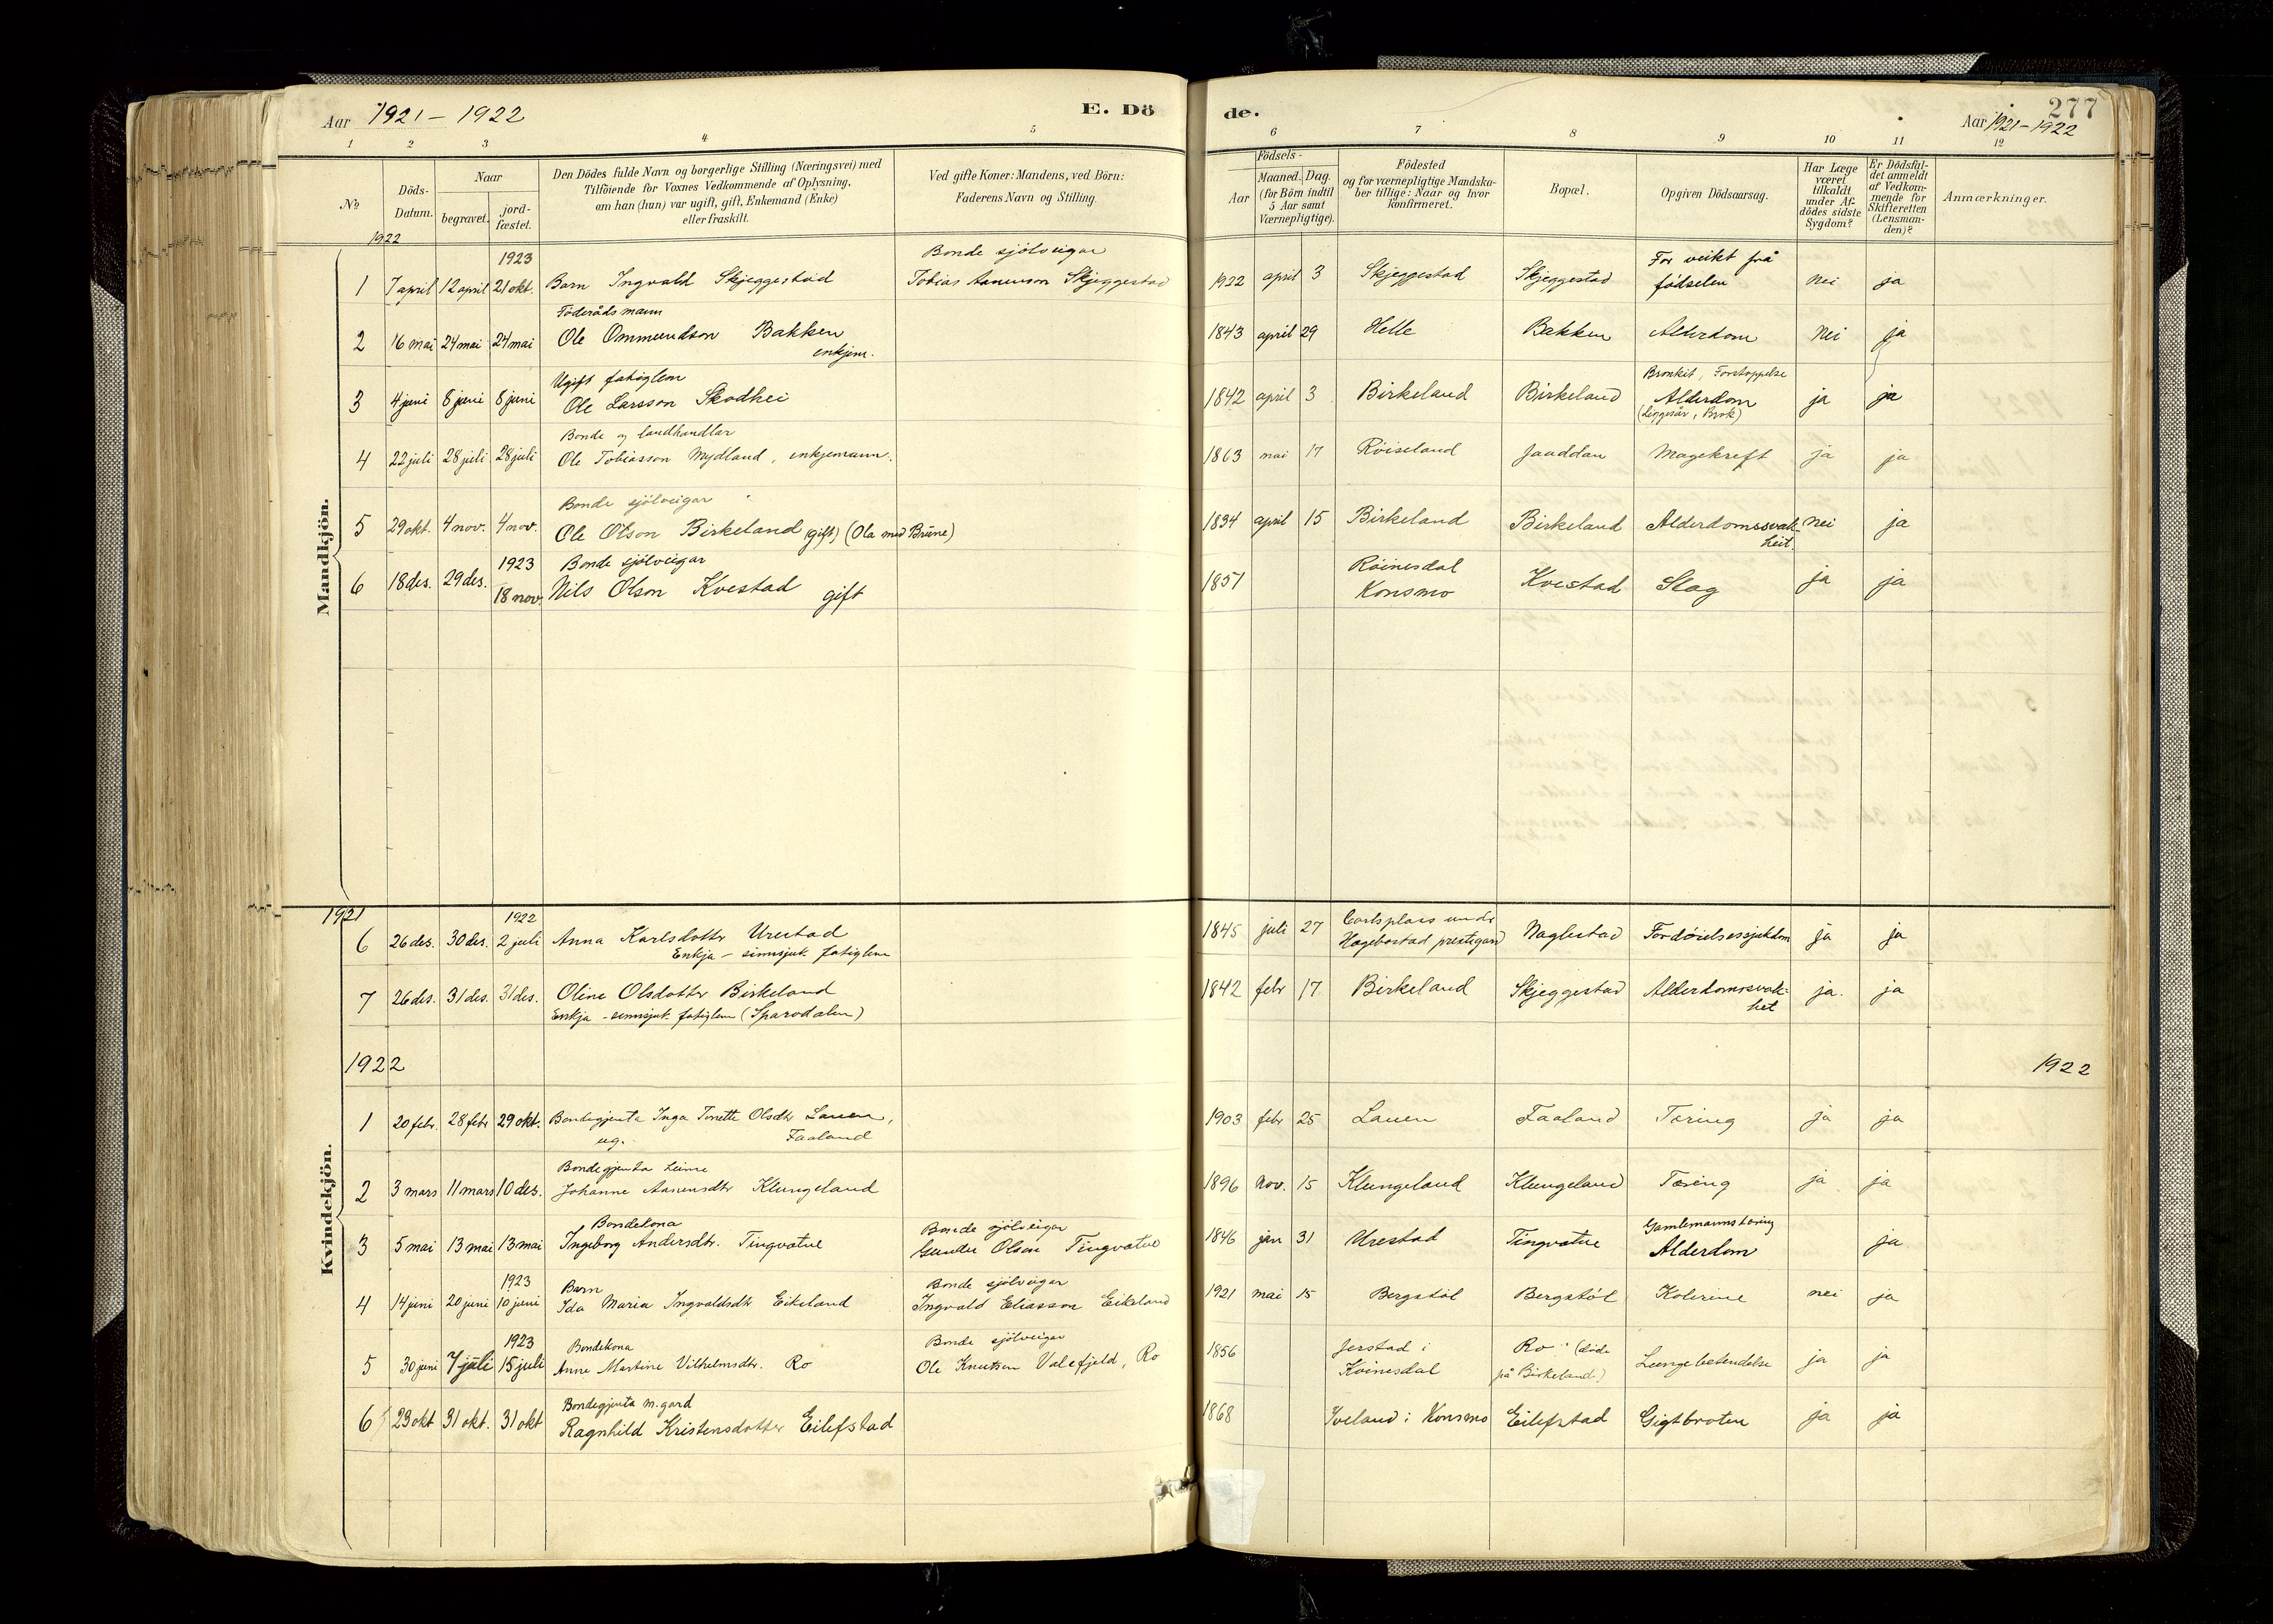 Aar 1921 – 1922
E. Dö
de.
277
Aar 1921 – 1922
1 2 3 4 5 6 7 8 9 10 11 12
№
Döds-Datum.
Naar
begravet.
jord-fæstet.
Den Dödes fulde Navn og borgerlige Stilling (Næringsvei) med
Tilföiende for Voxnes Vedkommende af Oplysning,
om han (hun) var ugift, gift, Enkemand (Enke)
eller fraskilt.
Ved gifte Koner: Mandens, ved Börn:
Faderens Navn og Stilling.
Födsels-
Aar
Maaned. Dag.
(for Börn indtil
5 Aar samt
Værnepligtige).
Födested
og for værnepligtige Mandska-
ber tillige: Naar og hvor
konfirmeret.
Bopæl.
Opgiven Dödsaarsag.
Har Læge
været
tilkaldt
under Af-
dödes sidste
Sygdom?
Er Dödsfal-
det anmeldt
af Vedkom-
mende for
Skifteretten
(Lensman-
den)?
Anmærkninger.
Mandkjön.
1922
1923 Bonde sjölveigar For veikt frå
1 7 april 12 april 21 okt. Barn Ingvald Skjeggestad Tobias Aanenson Skjeggestad 1922 april 3 Skjeggestad Skjeggestad födselen nei ja
Föderådsmann
2 16 mai 24 mai 24 mai Ole Ommundson Bakken 1843 april 29 Helle Bakken Alderdom Nei ja
enkjem.
Ugift fatiglem Bronkit, Forstoppelse
3 4 juni 8 juni 8 juni Ole Larsson Skodhei 1842 april 3 Birkeland Birkeland Alderdom ja ja
(Liggesår, Brok)
Bonde og landhandlar
4 22 juli 28 juli 28 juli Ole Tobiasson Mydland, enkjemann. 1863 mai 17 Röiseland Jaaddan Magekreft ja ja
Bonde sjölveigar
5 29 okt. 4 nov. 4 nov. Ole Olson Birkeland (gift) (Ola med Brüne) 1834 april 15 Birkeland Birkeland Alderdomssvak- nei ja
heit.
1923 Bonde sjölveigar Röinesdal
6 18 des. 29 des. 18 nov. Nils Olson Kvestad gift 1851 Konsmo Kvestad Slag ja ja
Kvindekjön.
1921
1922 Carlsplass under
6 26 des. 30 des. 2 juli Anna Karlsdotter Urestad 1845 juli 27 Hægebostad prestigard Naglestad Fordöielsessjukdom ja ja
Enkja – sinnsjuk fatiglem
7 26 des. 31 des. 31 des. Oline Olsdotter Birkeland 1842 febr 17 Birkeland Skjeggestad Alderdomssvak- ja. ja
Enkja – sinnsjuk fatiglem (Sparodalen) het
1922 1922
1 20 febr. 28 febr 29 okt. Bondegjenta Inga Tonette Olsdtr Lauen, 1903 febr 25 Lauen Faaland Tæring ja ja
ug. Faaland
Bondegjenta
2 3 mars 11 mars 10 des. Johanne Aanensdtr Klungeland 1896 Nov. 15 Klungeland Klungeland Tæring ja ja
Bondekona Bonde sjölveigar Gamlemannstæring
3 5 mai 13 mai 13 mai Ingeborg Andersdtr. Tingvatne Gunder Olson Tingvatne 1846 jan 31 Urestad Tingvatne Alderdom ja
1923 Barn Bonde sjölveigar
4 14 juni 20 juni 10 juni Ida Maria Ingvaldsdtr Eikeland Ingvald Eliasson Eikeland 1921 mai 15 Bergstöl Bergstöl Kolerine nei ja
1923 Bondekona Bonde sjölveigar Jerstad i Ro (döde
5 30 juni 7 juli 15 juli Anne Martine Vilhelmsdtr. Ro Ole Knutson Valefjeld, Ro 1856 Kvinesdal på Birkeland) Lungebetendelse ja ja
Bondegjenta m. gard
6 23 okt 31 okt. 31 okt Ragnhild Kristensdotter Eilefstad 1868 Iveland i Konsmo Eilefstad Gigtbroten ja ja